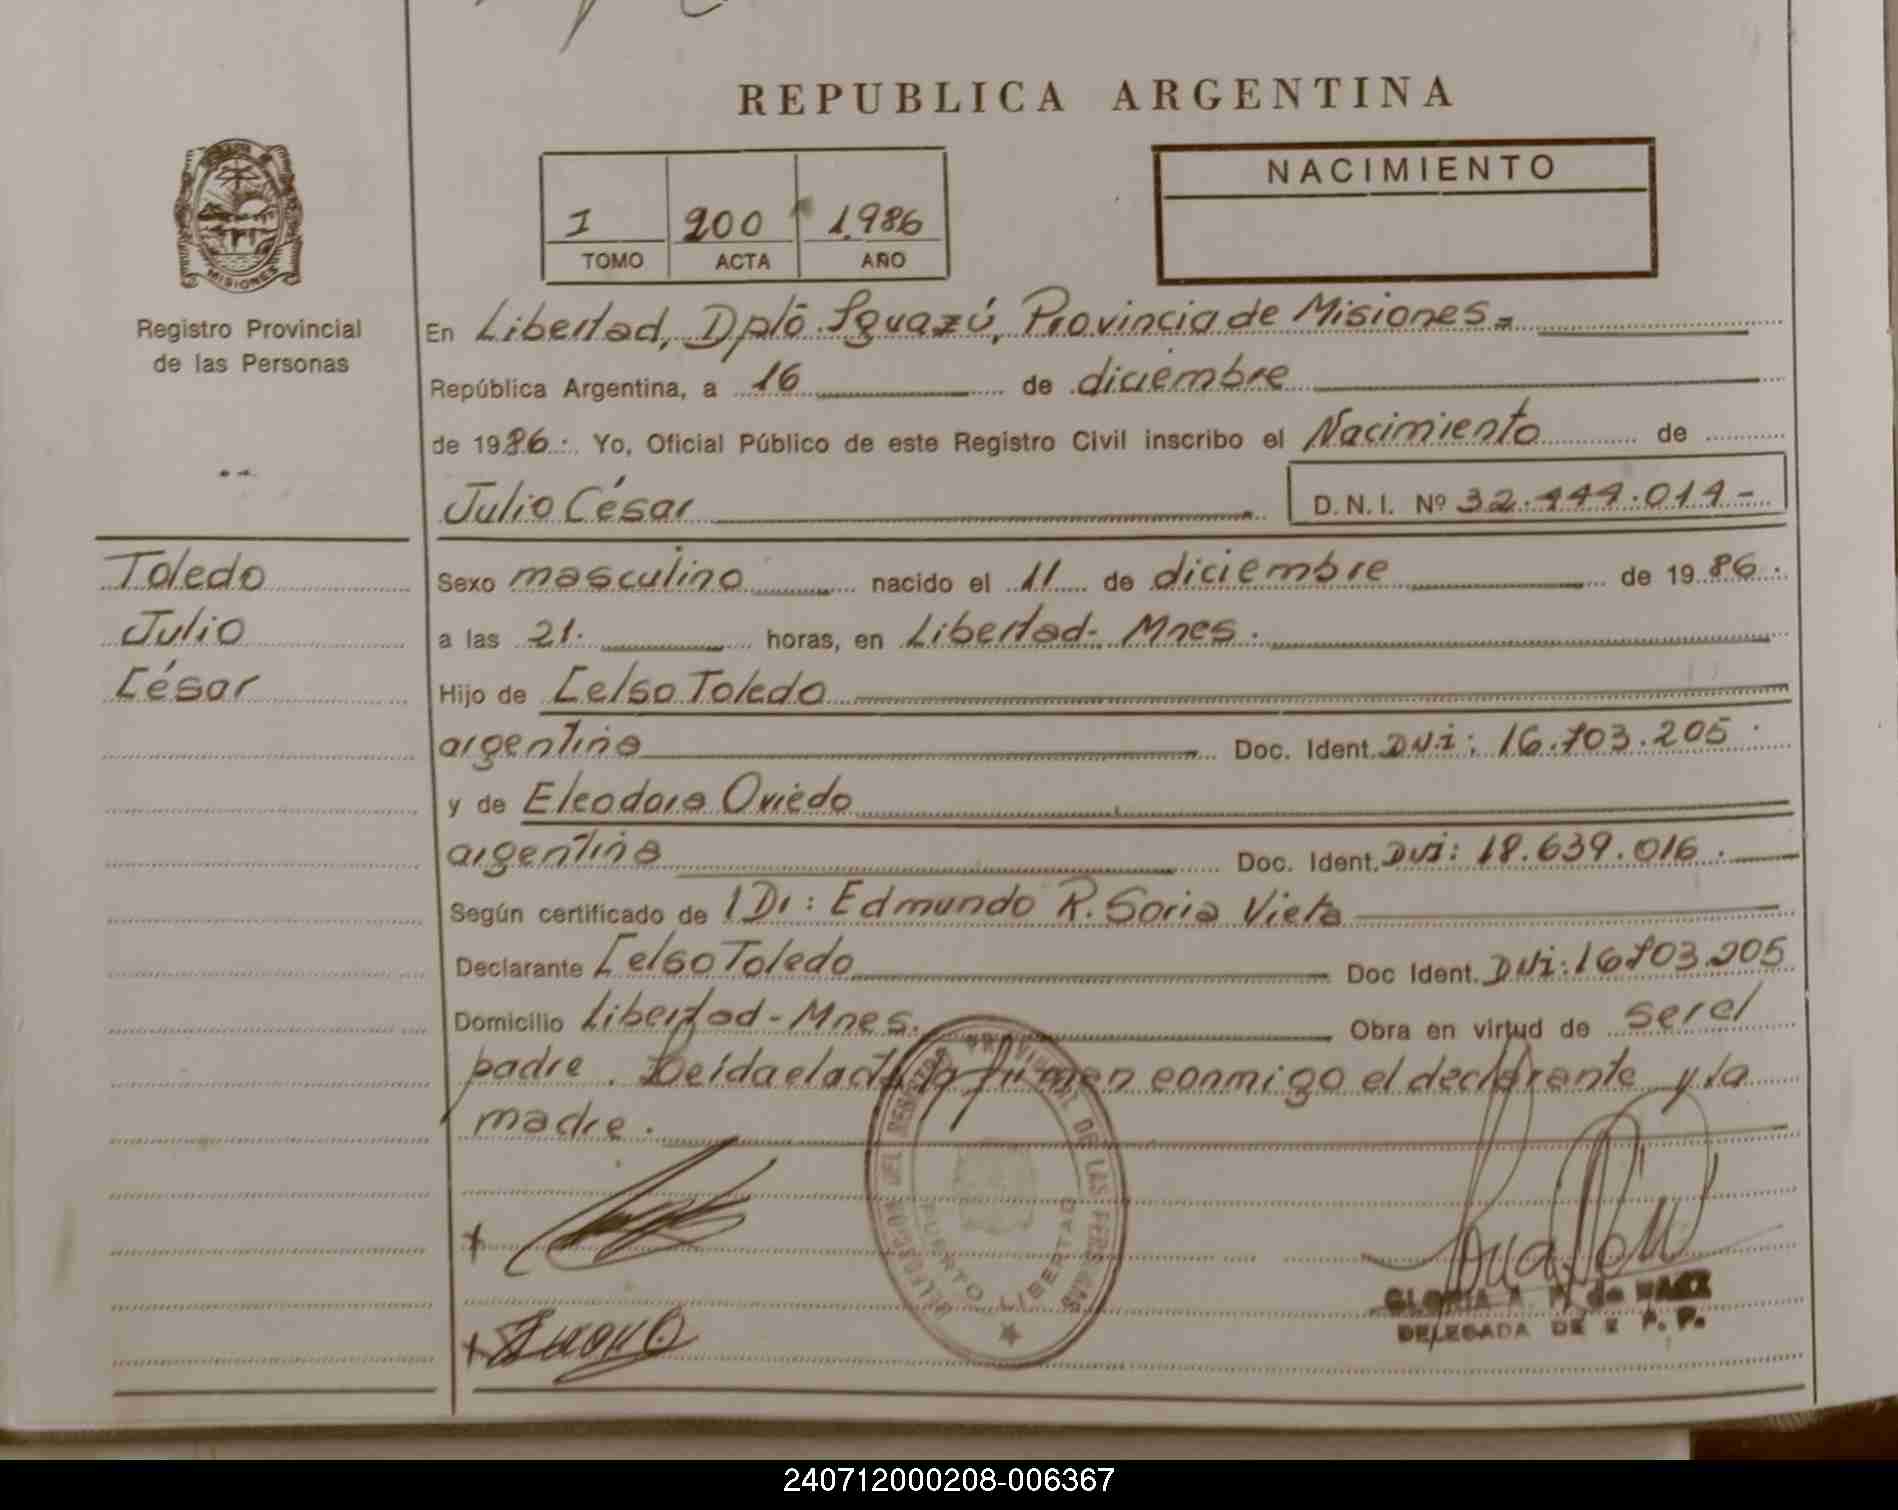 REPUBLICA ARGENTINA
NACIMIENTO
I 200 1.986
TOMO ACTA AÑO
MISIONES
Registro Provincial
de las Personas
En Libertad, Dptō. Iguazú, Provincia de Misiones.=
República Argentina, a 16 de diciembre
de 1986.. Yo, Oficial Público de este Registro Civil inscribo el Nacimiento de
Julio César D.N.I. Nº 32.444.014-
Toledo
Julio
César
Sexo masculino nacido el 11 de diciembre de 1986.
a las 21. horas, en Libertad- Mnes.
Hijo de Celso Toledo
argentino Doc. Ident. DNI: 16.703.205.
y de Eleodora Oviedo
argentina Doc. Ident. DNI: 18.639.016.
Según certificado de Dr: Edmundo R. Soria Viets
Declarante Celso Toledo Doc Ident. DNI: 16703.205
Domicilio Libertad-Mnes. Obra en virtud de ser el
padre. Leida el acta la firman conmigo el declarante y la
madre.
DELEGACION DEL REGISTRO PROVINCIAL DE LAS PERSONAS
PUERTO LIBERTAD
GLORIA A. P. de PAEZ
DELEGADA DE R. P. P.
240712000208-006367